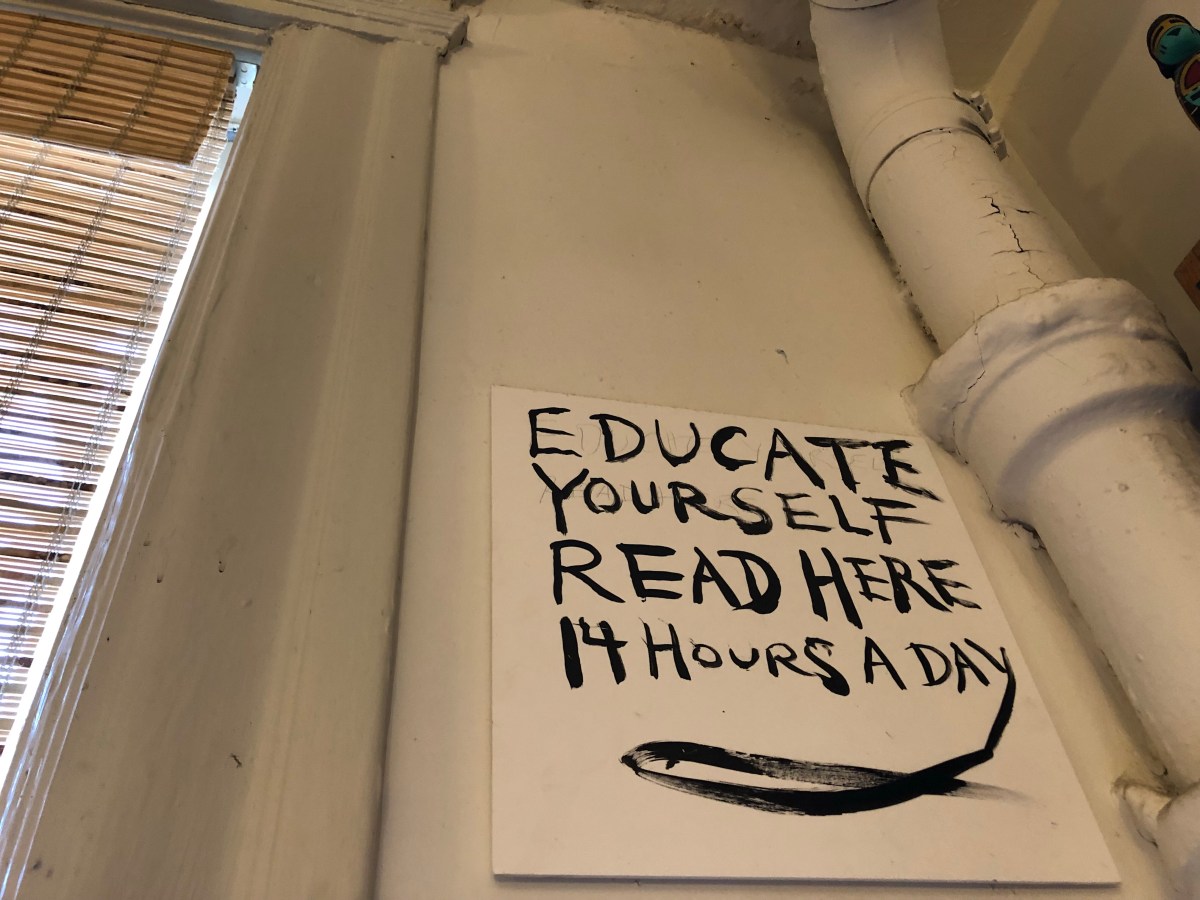 EDUCATE
YOURSELF
READ HERE
14 HOURS A DAY